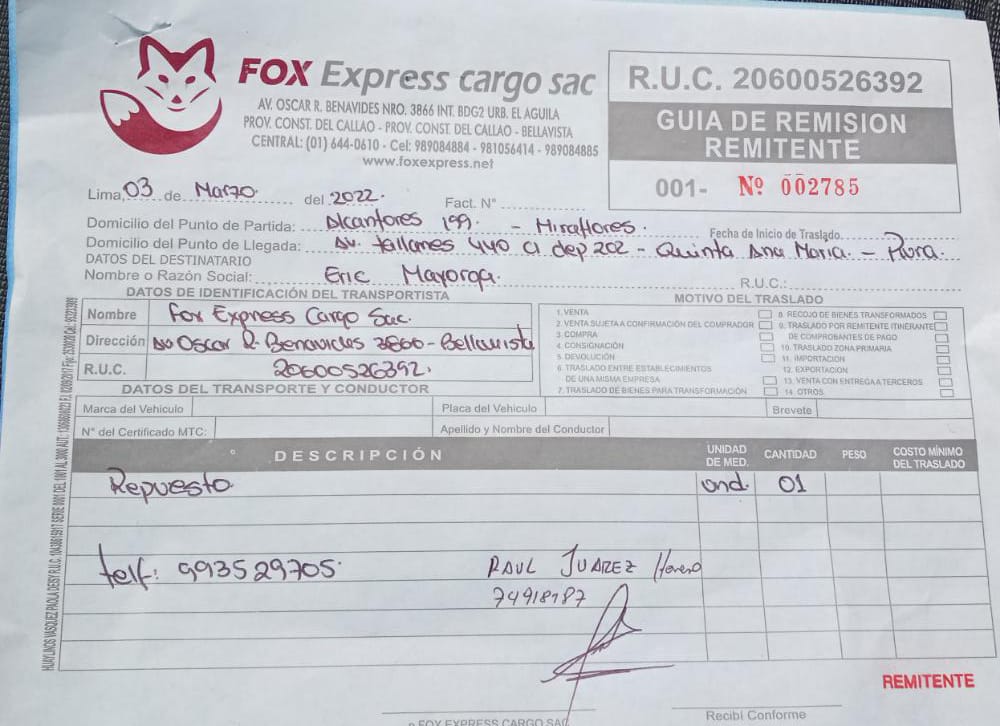 FOX Express cargo sac
AV. OSCAR R. BENAVIDES NRO. 3866 INT. BDG2 URB. EL AGUILA
PROV. CONST. DEL CALLAO - PROV. CONST. DEL CALLAO - BELLAVISTA
CENTRAL: (01) 644-0610 - Cel: 989084884 - 981056414 - 989084885
www.foxexpress.net
R.U.C. 20600526392
GUIA DE REMISION
REMITENTE
001- Nº 002785
Lima, 03 de Marzo. del 2022. Fact. N°
Domicilio del Punto de Partida: Alcanfores 199. - Miraflores. Fecha de Inicio de Traslado
Domicilio del Punto de Llegada: Av. tallanes 440 a dep 202 - Quinta Ana Maria. - Piura.
DATOS DEL DESTINATARIO
Nombre o Razón Social: Eric Mayorga. R.U.C.:
DATOS DE IDENTIFICACIÓN DEL TRANSPORTISTA
Nombre Fox Express Cargo Sac.
Dirección Av Oscar R. Benavides 3866 - Bellavista
R.U.C. 20600526392.
MOTIVO DEL TRASLADO
1. VENTA
2. VENTA SUJETA A CONFIRMACIÓN DEL COMPRADOR
3. COMPRA
4. CONSIGNACIÓN
5. DEVOLUCIÓN
6. TRASLADO ENTRE ESTABLECIMIENTOS
DE UNA MISMA EMPRESA
7. TRASLADO DE BIENES PARA TRANSFORMACIÓN
8. RECOJO DE BIENES TRANSFORMADOS
9. TRASLADO POR REMITENTE ITINERANTE
DE COMPROBANTES DE PAGO
10. TRASLADO ZONA PRIMARIA
11. IMPORTACION
12. EXPORTACION
13. VENTA CON ENTREGA A TERCEROS
14. OTROS
DATOS DEL TRANSPORTE Y CONDUCTOR
Marca del Vehiculo Placa del Vehículo Brevete
N° del Certificado MTC: Apellido y Nombre del Conductor
DESCRIPCIÓN UNIDAD DE MED. CANTIDAD PESO COSTO MÍNIMO DEL TRASLADO
Repuesto. und. 01
telf: 993529705. RAUL JUAREZ
74918187
REMITENTE
p. FOX EXPRESS CARGO SAC
Recibí Conforme